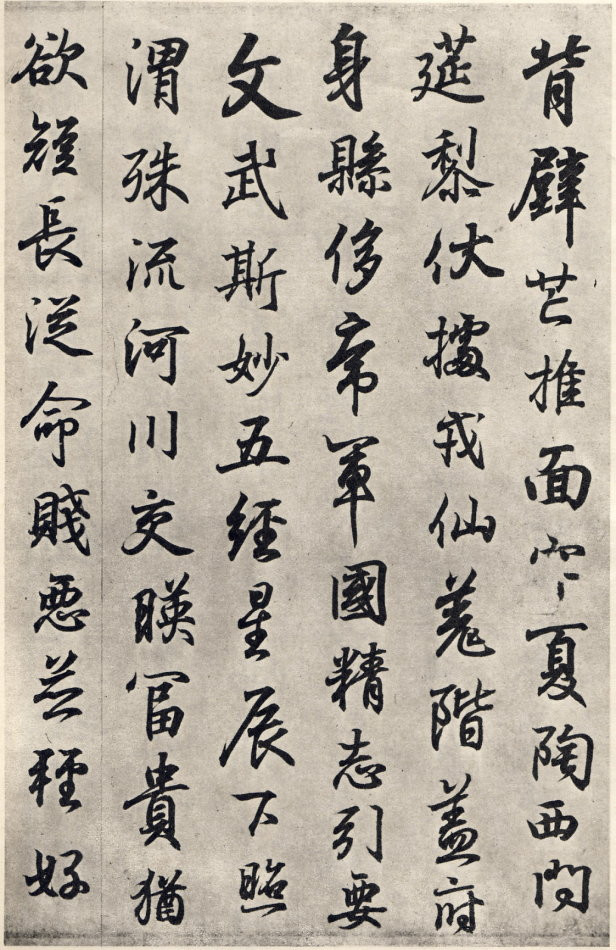 背璧芒推面鄙夏陶西門
莚黎伏據戎仙羌階蓋府
身縣侈帝軍國精志引要
文武斯妙五經星辰下照
渭殊流河川交暎冨貴猶
欲短長從命賤惡並種好